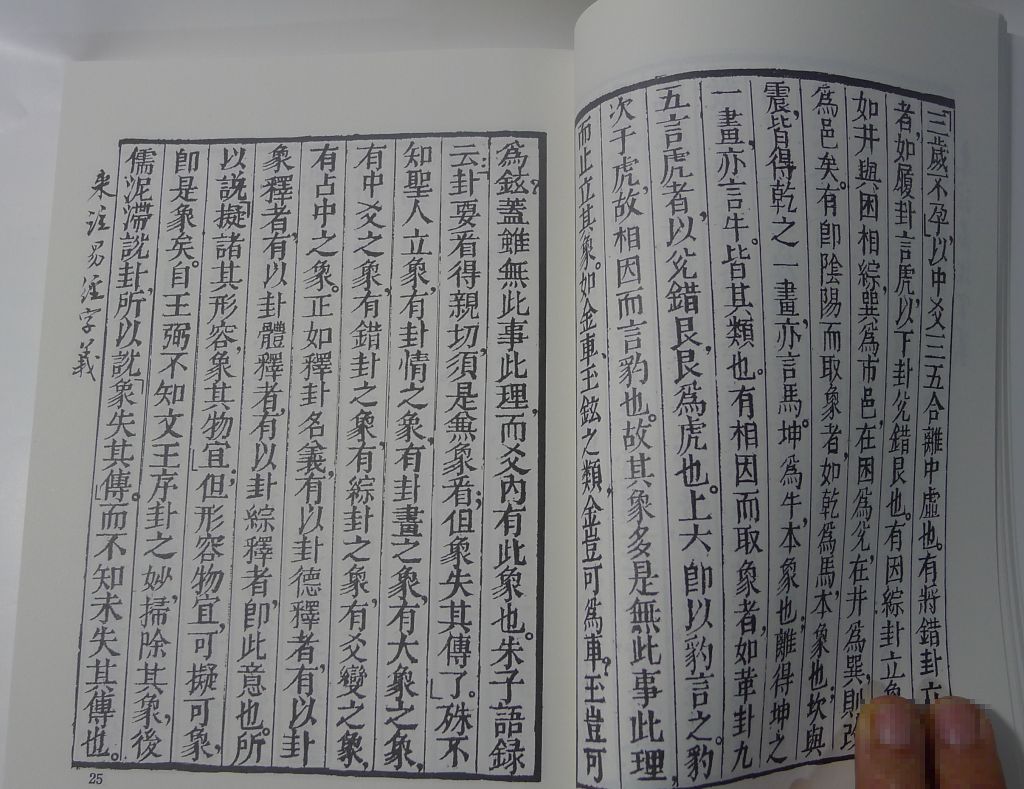 三歲不孕，以中爻三五合離中虛也。有將錯卦立
者，如履卦言虎，以下卦兌錯艮也。有因綜卦立象
如井與困相綜，巽為市邑，在困為兌，在井為巽，則改
為邑矣。有即陰陽而取象者，如乾為馬，本象也；坎與
震，皆得乾之一畫，亦言馬。坤為牛，本象也；離得坤之
一畫，亦言牛。皆其類也。有相因而取象者，如革卦九
五言虎者，以兌錯艮，艮為虎也。上六即以豹言之。豹
次于虎，故相因而言豹也。故其象多是無此事此理，
而止立其象。如金車、玉鉉之類，金豈可為車？玉豈可
為鉉？蓋雖無此事此理，而爻內有此象也。朱子語錄
云：「卦要看得親切，須是無象看；但象失其傳了。」殊不
知聖人立象，有卦情之象，有卦畫之象，有大象之象，
有中爻之象，有錯卦之象，有綜卦之象，有爻變之象，
有占中之象。正如釋卦名義，有以卦德釋者，有以卦
象釋者，有以卦體釋者，有以卦綜釋者，即此意也。所
以說擬諸其形容，象其物宜；但形容物宜，可擬可象，
即是象矣。自王弼不知文王序卦之妙，掃除其象，後
儒泥滯說卦，所以說「象失其傳」。而不知未失其傳也。
來註易經字義
25